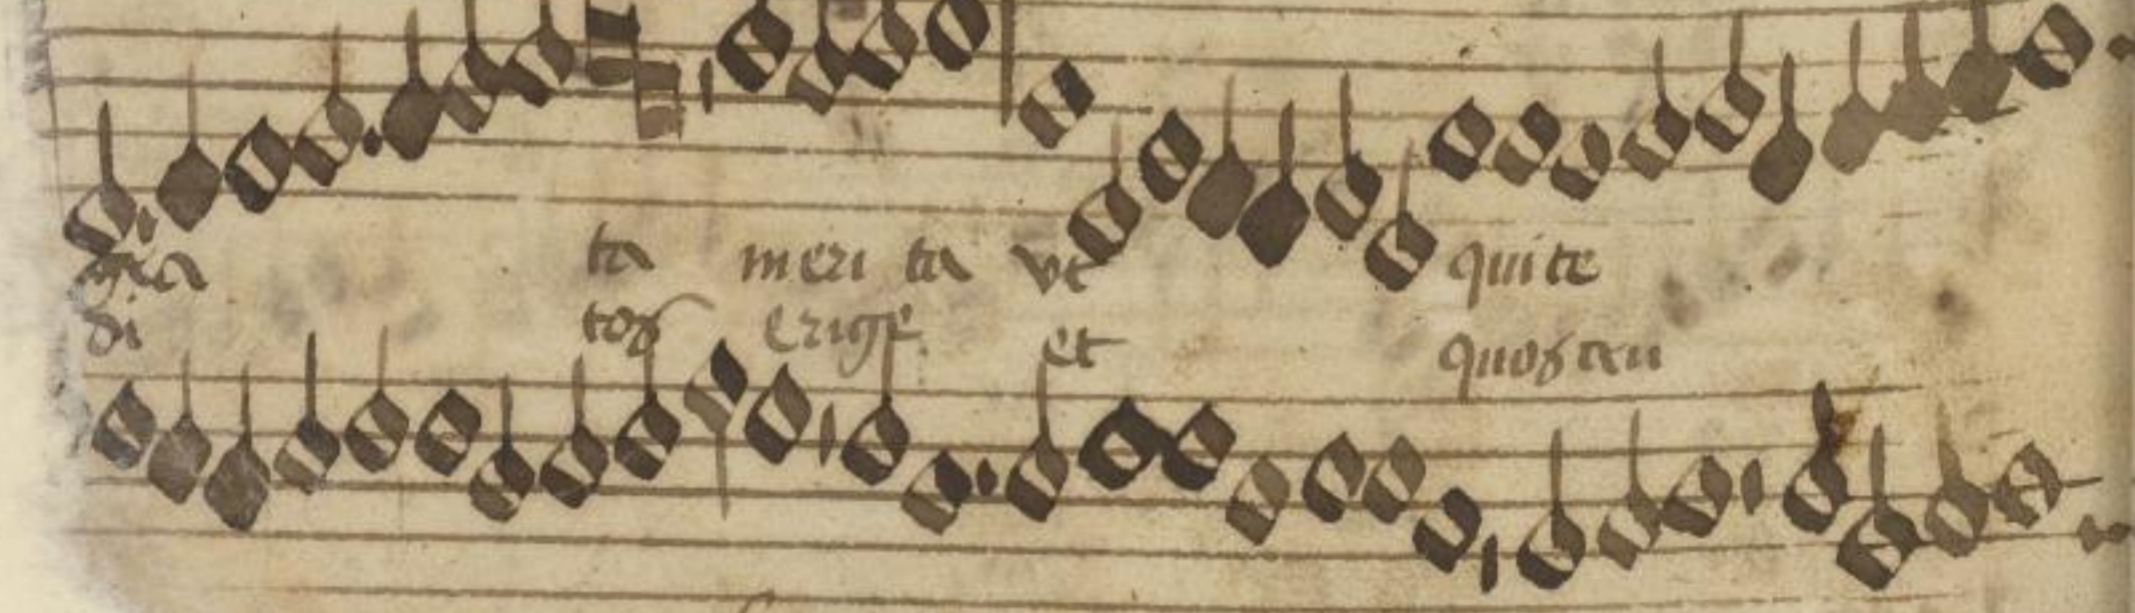 gra ta meri ta ut quite
di tos erige et quos cru